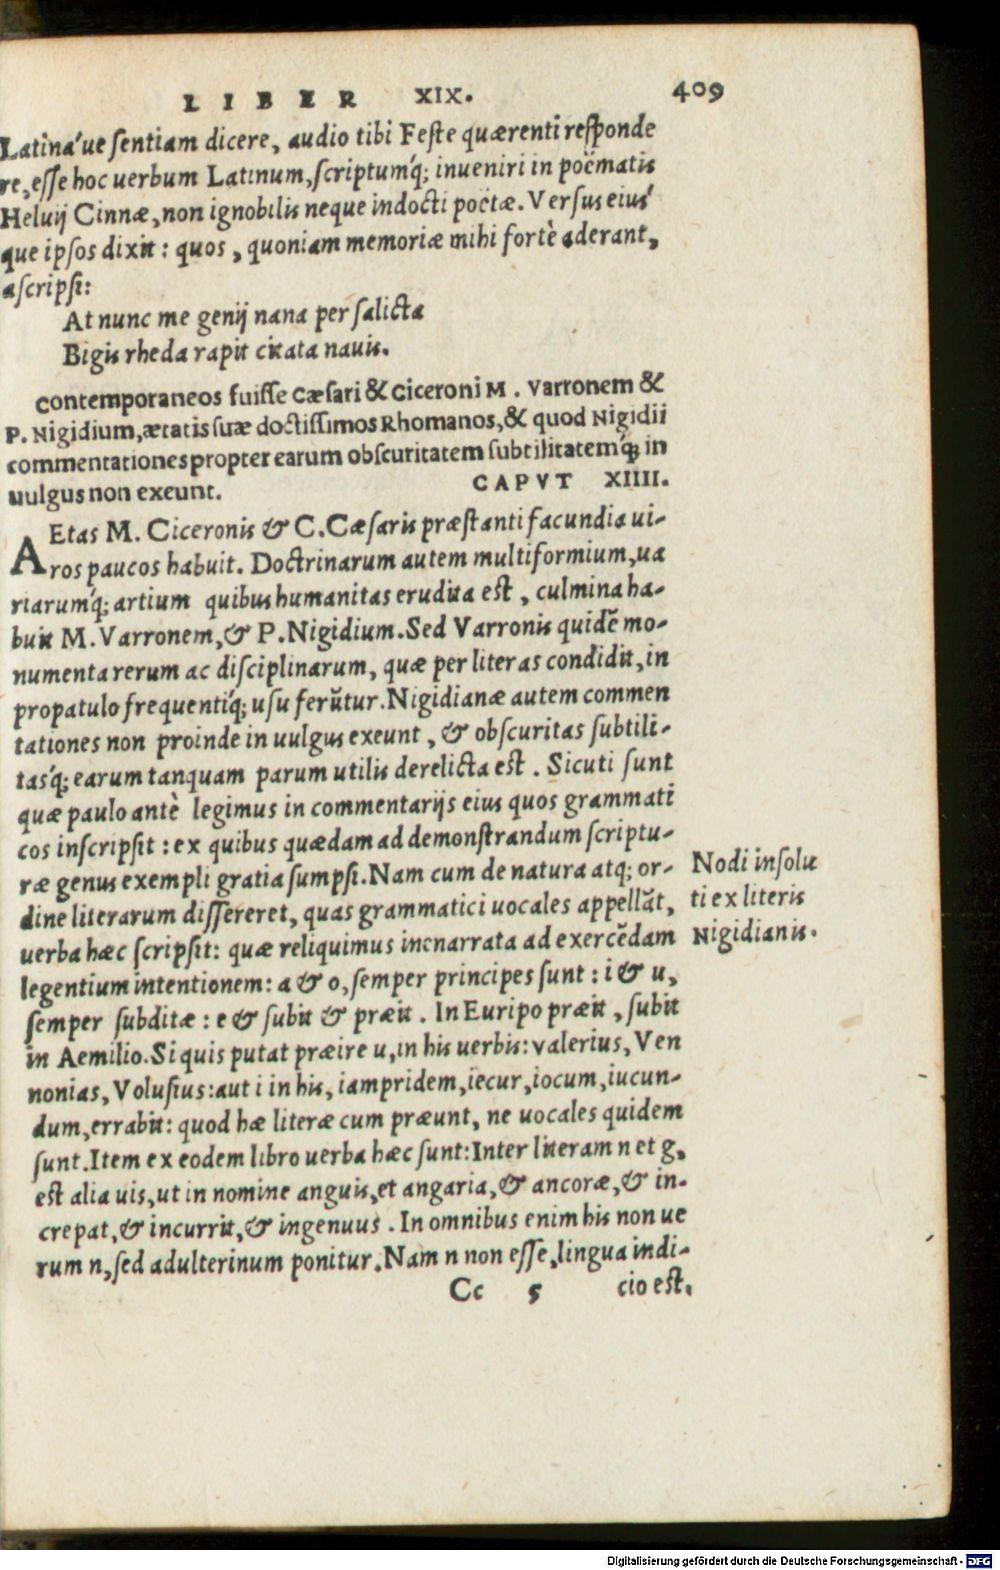 LIBER XIX. 409
Latina'ue sentiam dicere, audio tibi Feste quærenti responde
re, esse hoc uerbum Latinum, scriptumq́; inueniri in poëmatis
Heluij Cinnæ, non ignobilis neque indocti poëtæ. Versus eius'
que ipsos dixit: quos, quoniam memoriæ mihi fortè aderant,
ascripsi:
At nunc me genij nana per salicta
Bigis rheda rapit citata nauis.
Contemporaneos fuisse Cæsari & Ciceroni M. Varronem &
P. Nigidium, ætatis suæ doctissimos Rhomanos, & quod Nigidii
commentationes propter earum obscuritatem subtilitatemq́; in
uulgus non exeunt. CAPVT XIIII.
AEtas M. Ciceronis & C. Cæsaris præstanti facundia ui-
ros paucos habuit. Doctrinarum autem multiformium, ua
riarumq́; artium quibus humanitas erudita est, culmina ha-
buit M. Varronem, & P. Nigidium. Sed Varronis quidẽ mo-
numenta rerum ac disciplinarum, quæ per literas condidit, in
propatulo frequentiq́; usu ferũtur. Nigidianæ autem commen
tationes non proinde in uulgus exeunt, & obscuritas subtili-
tasq́; earum tanquam parum utilis derelicta est. Sicuti sunt
quæ paulo antè legimus in commentarijs eius quos grammati
cos inscripsit: ex quibus quædam ad demonstrandum scriptu-
ræ genus exempli gratia sumpsi. Nam cum de natura atq; or-
dine literarum dissereret, quas grammatici uocales appellãt,
uerba hæc scripsit: quæ reliquimus inenarrata ad exercẽdam
legentium intentionem: a & o, semper principes sunt: i & u,
semper subditæ: e & subit & præit. In Euripo præit, subit
in Aemilio. Si quis putat præire u, in his uerbis: Valerius, Ven
nonias, Volusius: aut i in his, iampridem, iecur, iocum, iucun-
dum, errabit: quod hæ literæ cum præunt, ne uocales quidem
sunt. Item ex eodem libro uerba hæc sunt: Inter literam n et g,
est alia uis, ut in nomine anguis, et angaria, & ancoræ, & in-
crepat, & incurrit, & ingenuus. In omnibus enim his non ue
rum n, sed adulterinum ponitur. Nam n non esse, lingua indi-
Cc 5 cio est.
Nodi insolu
ti ex literis
Nigidianis.
Digitalisierung gefördert durch die Deutsche Forschungsgemeinschaft - DFG